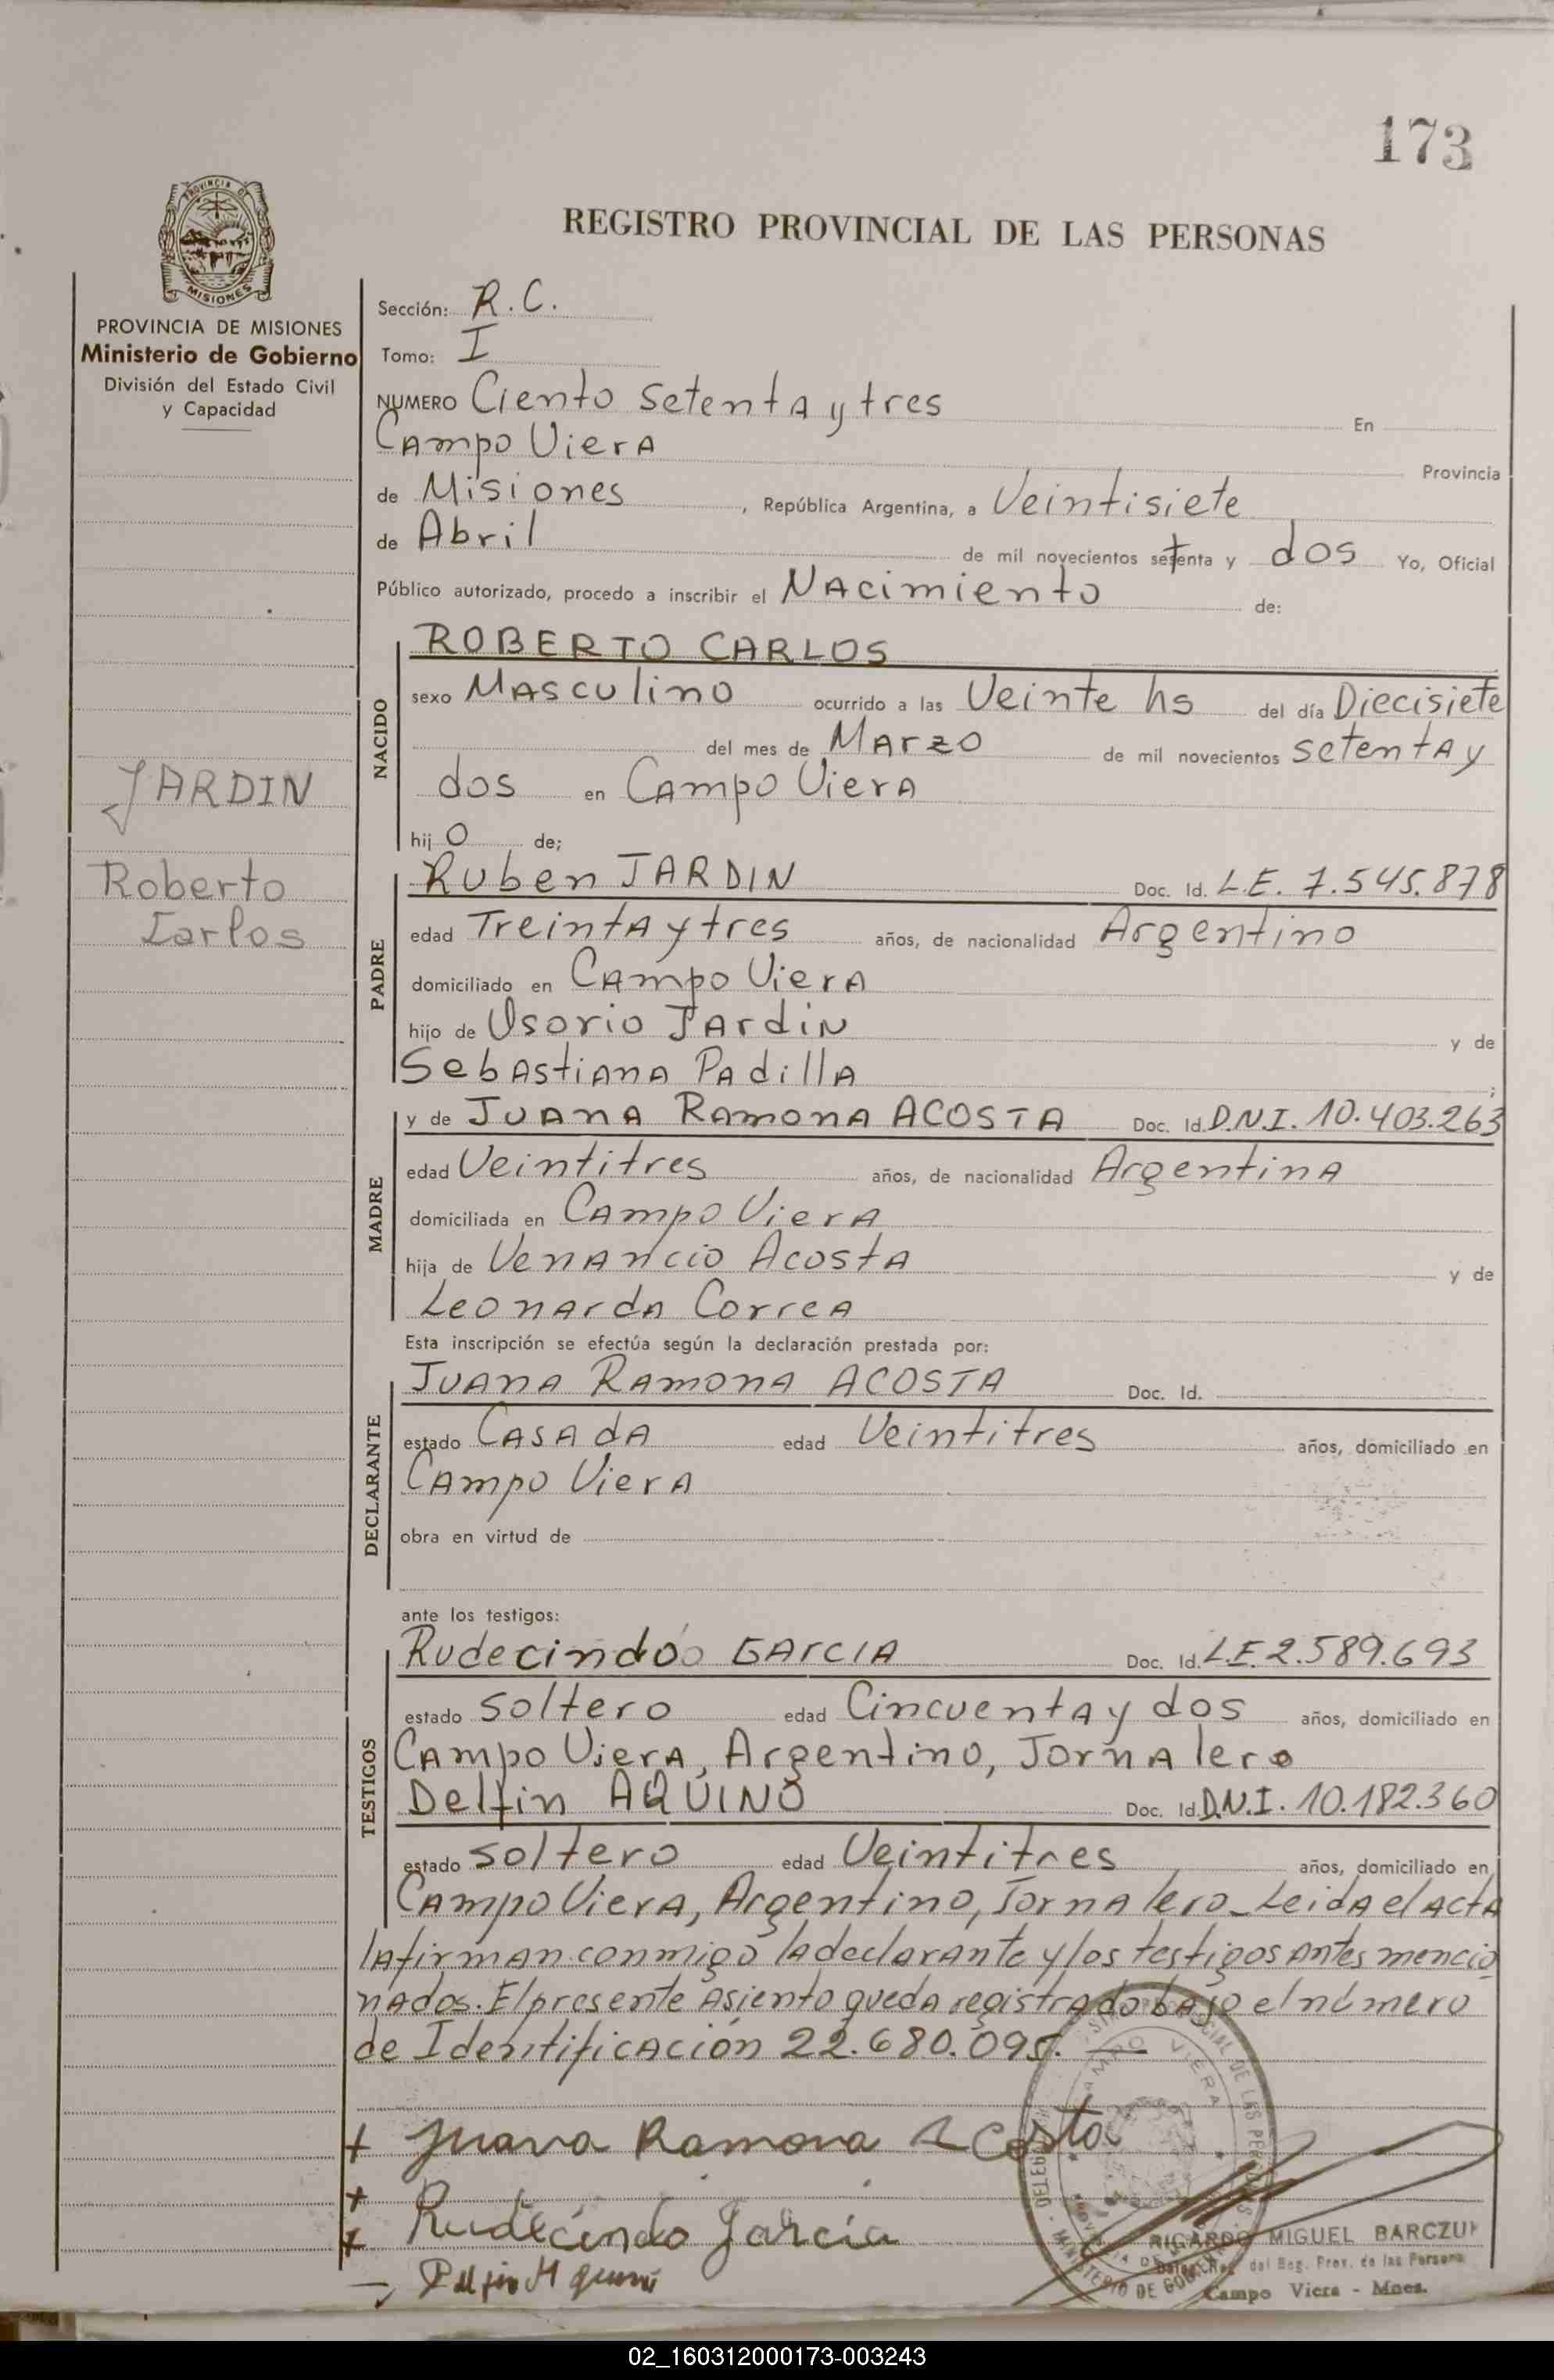 173
REGISTRO PROVINCIAL DE LAS PERSONAS
PROVINCIA DE
MISIONES
PROVINCIA DE MISIONES
Ministerio de Gobierno
División del Estado Civil
y Capacidad
JARDIN
Roberto
Carlos
Sección: R.C.
Tomo: I
NUMERO Ciento Setenta y tres En
Campo Viera Provincia
de Misiones, República Argentina, a Veintisiete
de Abril de mil novecientos setenta y dos Yo, Oficial
Público autorizado, procedo a inscribir el Nacimiento de:
NACIDO
ROBERTO CARLOS
sexo Masculino ocurrido a las Veinte hs del día Diecisiete
del mes de Marzo de mil novecientos setenta y
dos en Campo Viera
hij o de;
PADRE
Ruben JARDIN Doc. Id. L.E. 7.545.878
edad Treinta y tres años, de nacionalidad Argentino
domiciliado en Campo Viera
hijo de Osorio Jardin y de
Sebastiana Padilla;
MADRE
y de Juana Ramona ACOSTA Doc. Id. D.N.I. 10.403.263
edad Veintitres años, de nacionalidad Argentina
domiciliada en Campo Viera
hija de Venancio Acosta y de
Leonarda Correa
Esta inscripción se efectúa según la declaración prestada por:
DECLARANTE
Juana Ramona ACOSTA Doc. Id.
estado Casada edad Veintitres años, domiciliado en
Campo Viera
obra en virtud de
ante los testigos:
TESTIGOS
Rudecindo GARCIA Doc. Id. L.E. 2.589.693
estado soltero edad Cincuenta y dos años, domiciliado en
Campo Viera, Argentino, Jornalero
Delfin AQUINO Doc. Id. D.N.I. 10.182.360
estado soltero edad Veintitres años, domiciliado en
Campo Viera, Argentino, Jornalero_Leida el acta
la firman conmigo la declarante y los testigos antes mencio
nados. El presente asiento queda registrado bajo el número
de Identificación 22.680.095. —
+ Juana Ramona Acosta
+ Rudecindo Garcia
CAMPO VIERA
MINISTERIO DE
RICARDO MIGUEL BARCZUK
del Reg. Prov. de las Persona
Campo Viera - Mnes.
02_160312000173-003243